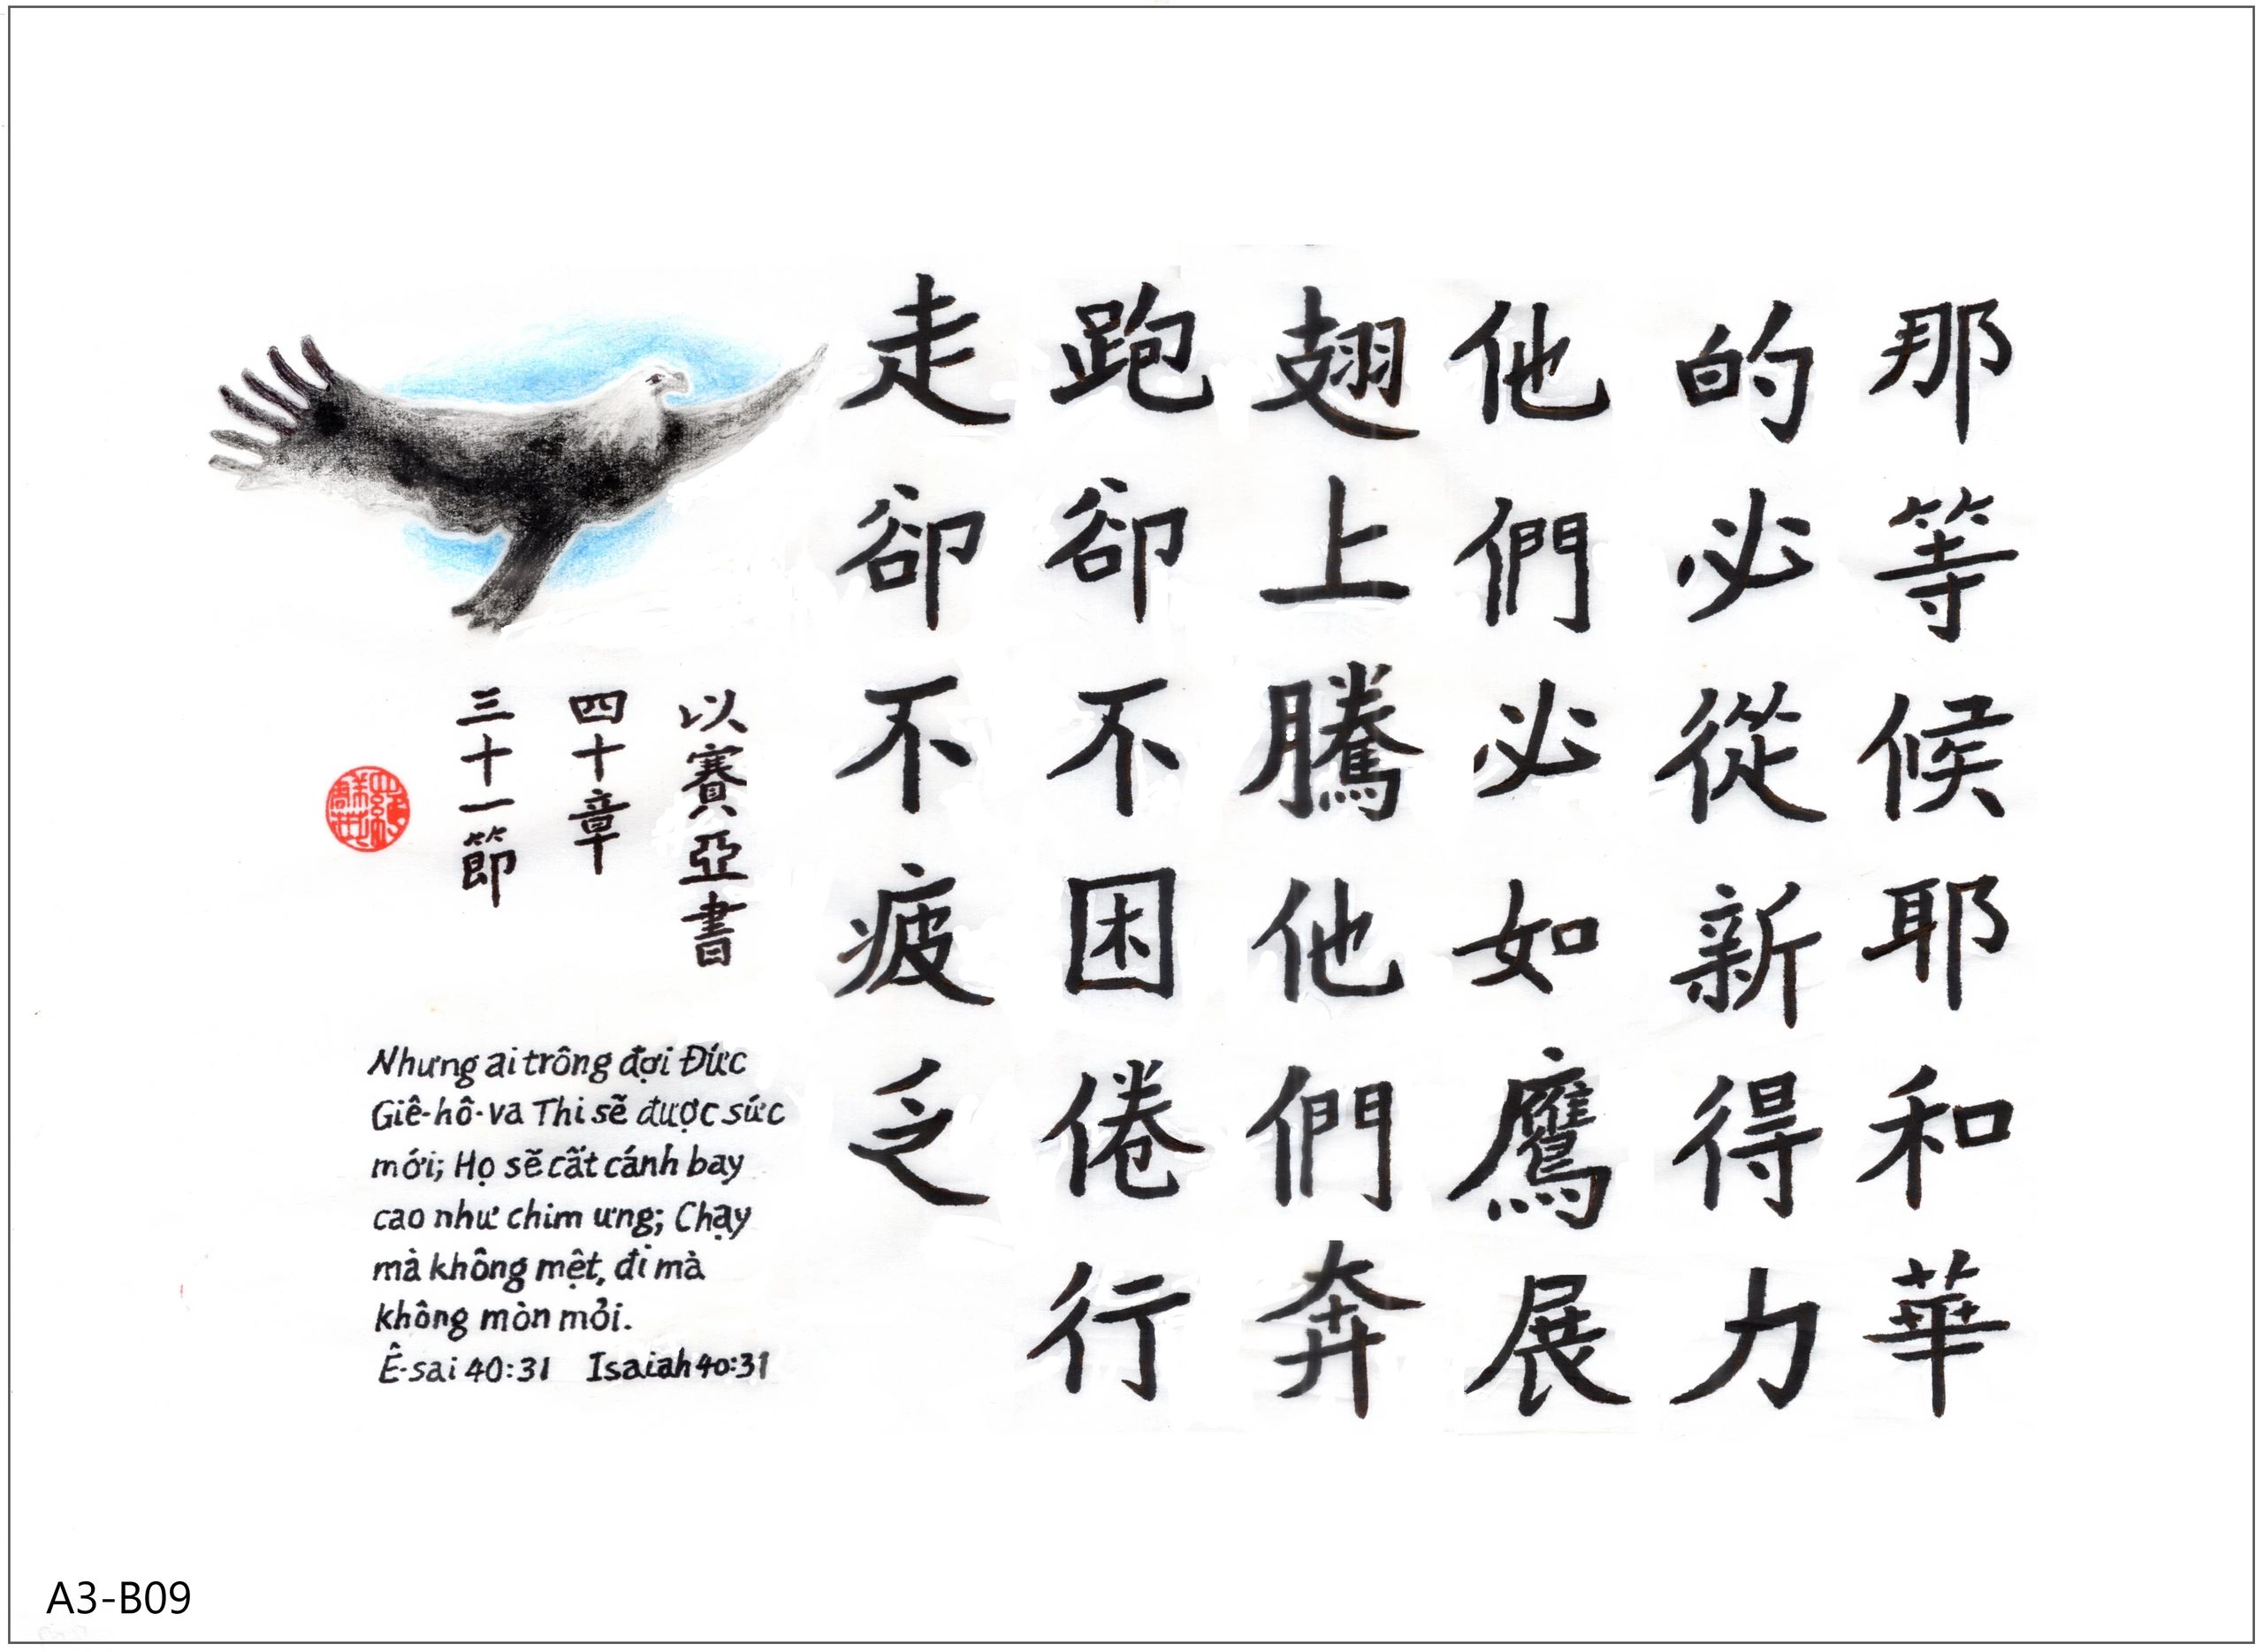 那等候耶和華
的必從新得力
他們必如鷹展
翅上騰他們奔
跑卻不困倦行
走卻不疲乏
以賽亞書
四十章
三十一節
Nhưng ai trông đợi Đức
Giê-hô-va Thi sẽ được sức
mới; Họ sẽ cất cánh bay
cao như chim ưng; Chạy
mà không mệt, đi mà
không mòn mỏi.
Ê-sai 40:31 Isaiah 40:31
A3-B09